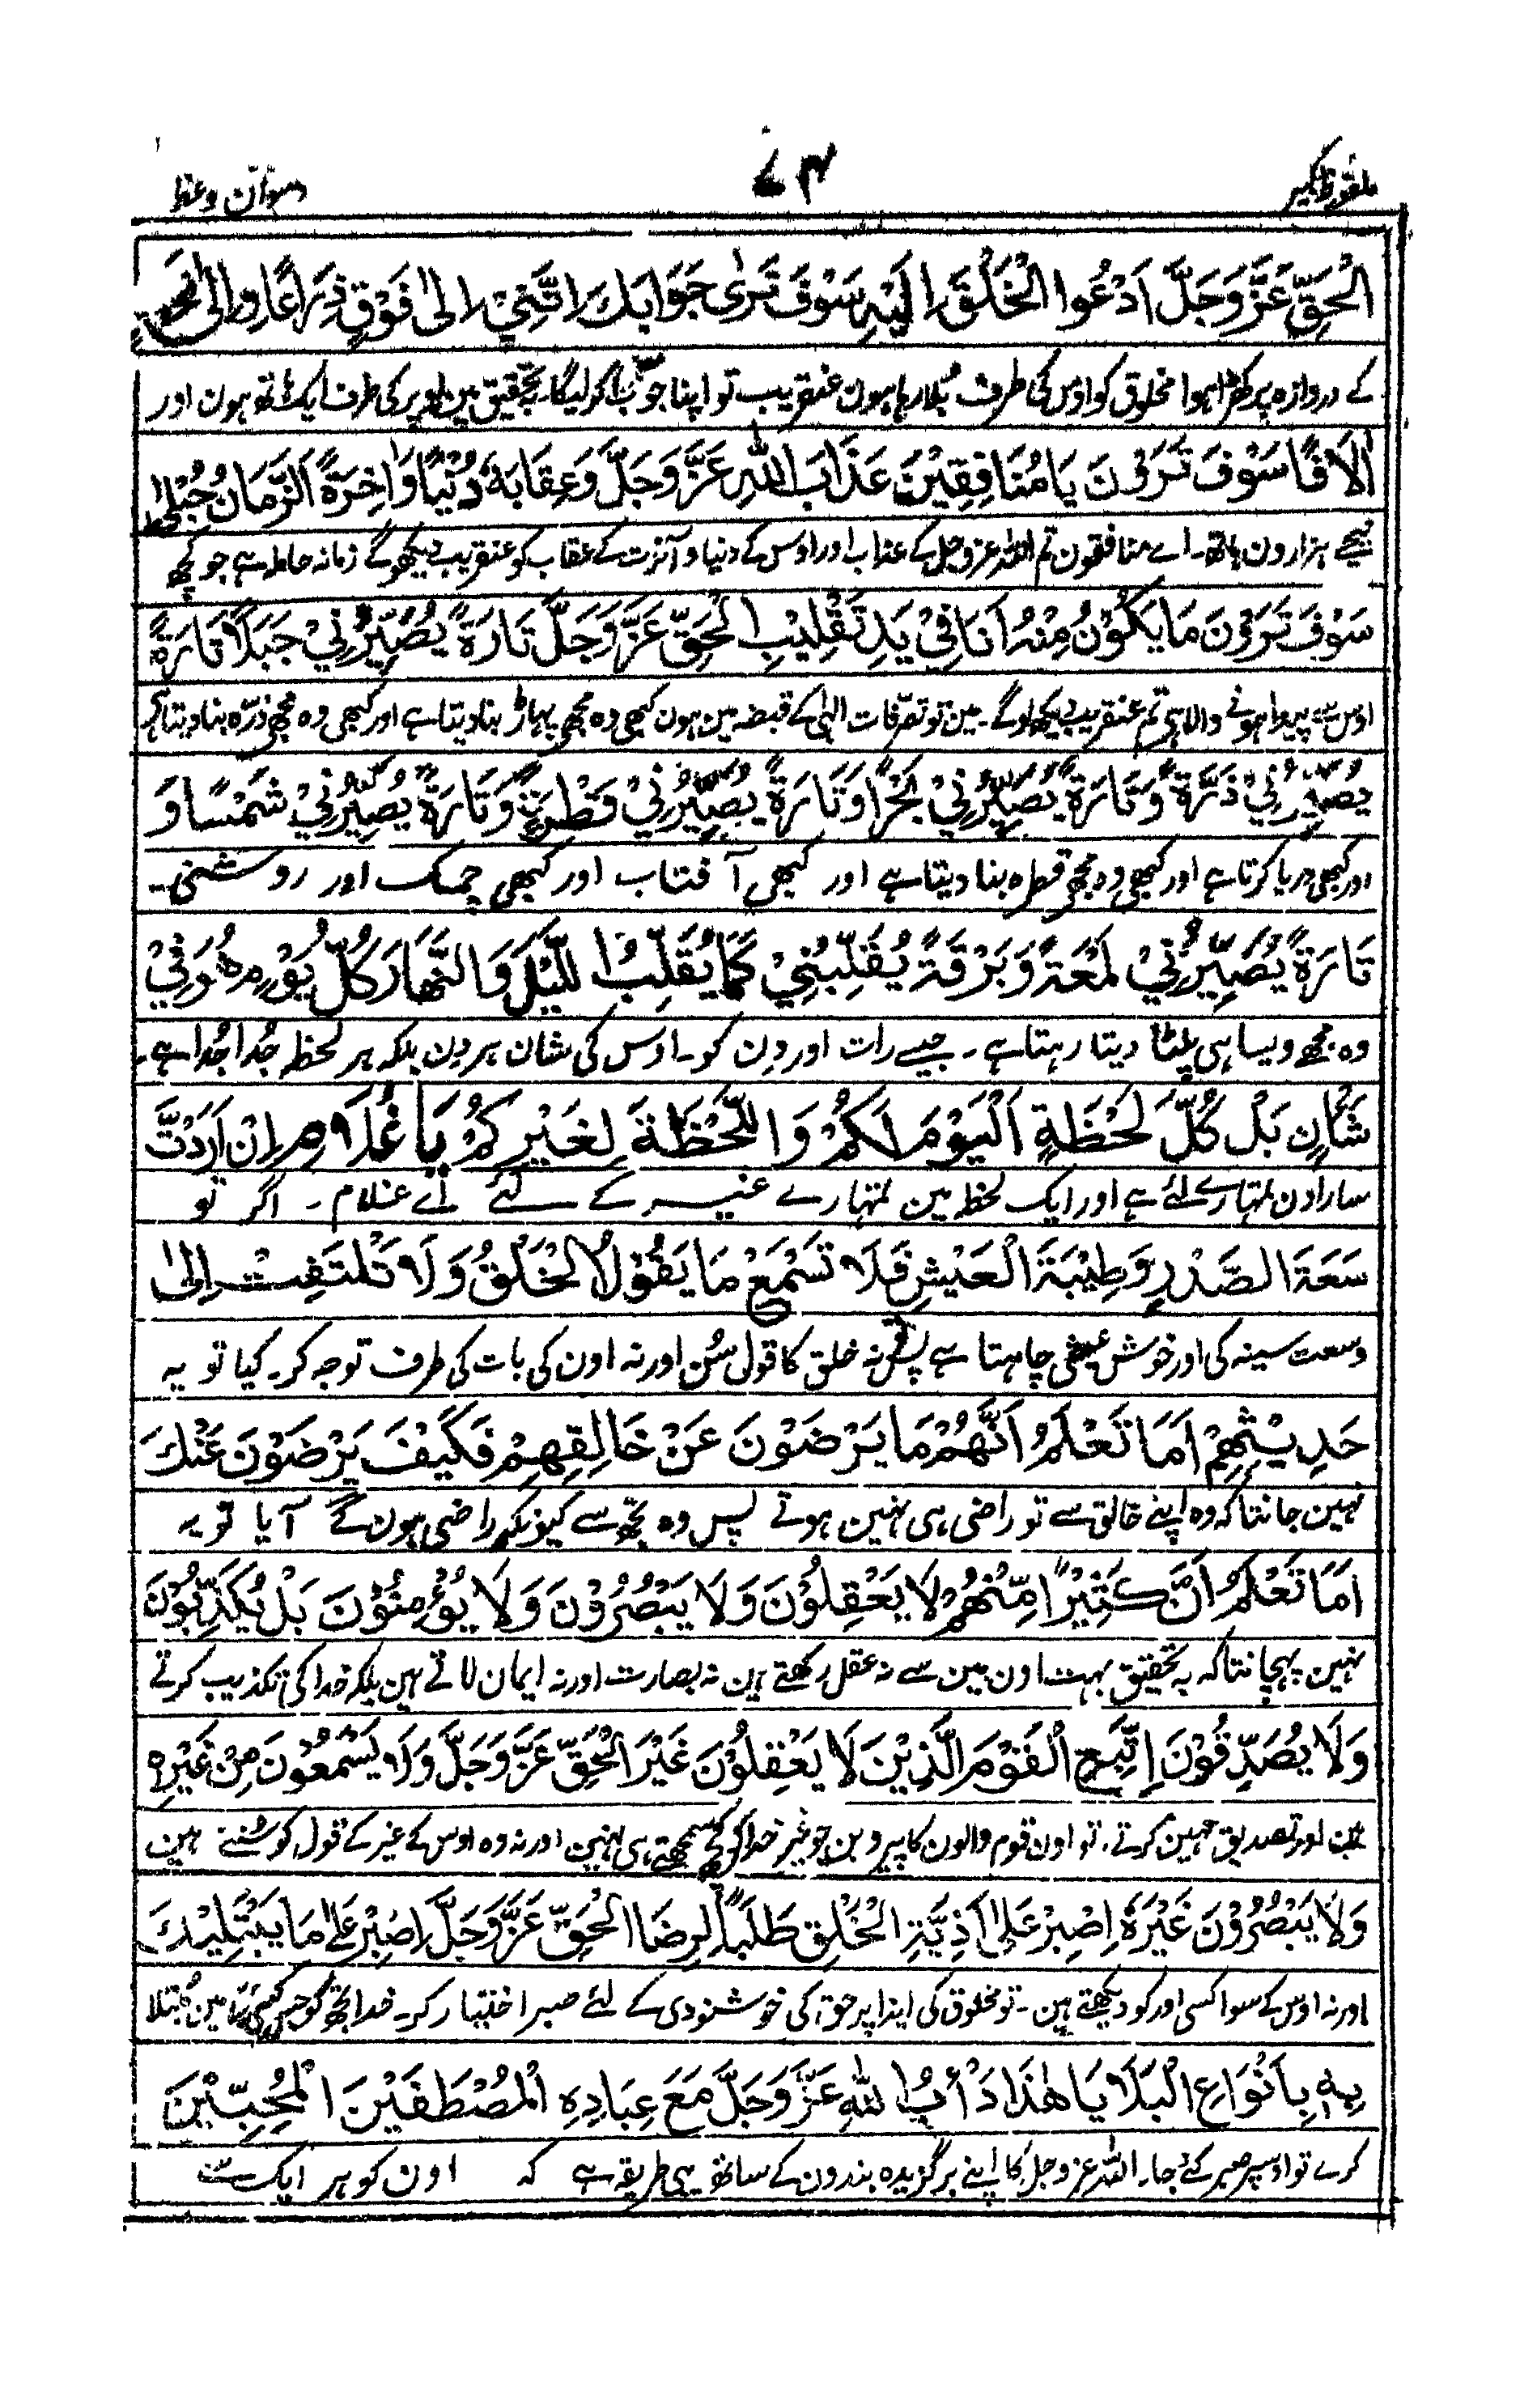 ملفوظ کبیر ۷۴ دسواں وعظ
الْحَقِّ عَزَّ وَجَلَّ اَدْعُوا الْخَلْقَ اِلَيْهِ سَوْفَ تَرٰى جَوَابَكَ اِنَّنِيْ اِلٰى فَوْقٍ ذِرَاعًا وَاِلٰى تَحْتٍ
کے دروازہ پر کھڑا ہوا مخلوق کو اوس کی طرف بلا رہا ہون عنقریب تو اپنا جواب پا کر لیگا۔ بتحقیق مین اوپر کی طرف ایک ہاتھ ہون اور
اٰلَافًا سَوْفَ تَرَوْنَ يَا مُنَافِقِيْنَ عَذَابَ اللّٰهِ عَزَّ وَجَلَّ وَعِقَابَهٗ دُنْيًا وَاٰخِرَةً اَلزَّمَانُ حُبْلٰى
نیچے ہزارون ہاتھ۔ اے منافقون تم اللہ عزوجل کے عذاب اور اوس کے دنیا و آخرت کے عقاب کو عنقریب دیکھو گے زمانہ حاملہ ہے جو کچھ
سَوْفَ تَرَوْنَ مَا يَكُوْنُ مِنْهُ اَنَا فِيْ يَدِ تَقْلِيْبِ الْحَقِّ عَزَّ وَجَلَّ تَارَةً يُصَيِّرُنِيْ جَبَلًا تَارَةً
اوس سے پیدا ہونے والا ہی تم عنقریب دیکھ لوگے۔ مین تو تصرفات الٰہی کے قبضہ مین ہون کبھی وہ مجھے پہاڑ بنا دیتا ہے اور کبھی وہ مجھے ذرّہ بنا دیتا ہے
يُصَيِّرُنِيْ ذَرَّةً وَتَارَةً يُصَيِّرُنِيْ بَحْرًا وَتَارَةً يُصَيِّرُنِيْ قَطْرَةً وَتَارَةً يُصَيِّرُنِيْ شَمْسًا وَ
اور کبھی دریا کرتا ہے اور کبھی وہ مجھے قطرہ بنا دیتا ہے اور کبھی آفتاب اور کبھی چمک اور روشنی۔
تَارَةً يُصَيِّرُنِيْ لَمْعَةً وَبَرْقَةً يُقَلِّبُنِيْ كَمَا يُقَلِّبُ اللَّيْلَ وَالنَّهَارَ كُلَّ يَوْمٍ هُوَ فِيْ
وہ مجھے ویسا ہی پلٹا دیتا رہتا ہے۔ جیسے رات اور دن کو۔ اوس کی شان ہر دن بلکہ ہر لحظہ جُدا جُدا ہے۔
شَاْنٍ بَلْ كُلَّ لَحْظَةٍ اَلْيَوْمَ لَكُمْ وَاللَّحْظَةَ لِغَيْرِكُمْ يَا غُلَامِ اِنْ اَرَدْتَّ
سارا دن تمہارے لئے ہے اور ایک لحظہ مین تمہارے غیر کے لئے اے غلام۔ اگر تو
سَعَةَ الصَّدْرِ وَطِيْبَةَ الْعَيْشِ فَلَا تَسْمَعْ مَا يَقُوْلُ الْخَلْقُ وَلَا تَلْتَفِتْ اِلٰى
وسعت سینہ کی اور خوش عیشی چاہتا ہے پس نہ خلق کا قول سُن اور نہ اون کی بات کی طرف توجہ کر۔ کیا تو یہ
حَدِيْثِهِمْ اَمَا تَعْلَمُ اَنَّهُمْ مَا يَرْضَوْنَ عَنْ خَالِقِهِمْ فَكَيْفَ يَرْضَوْنَ عَنْكَ
نہین جانتا کہ وہ اپنے خالق سے تو راضی ہی نہین ہوتے پس وہ تجھ سے کیونکر راضی ہون گے آیا تو یہ
اَمَا تَعْلَمُ اَنَّ كَثِيْرًا مِّنْهُمْ لَا يَعْقِلُوْنَ وَلَا يَبْصُرُوْنَ وَلَا يُؤْمِنُوْنَ بَلْ يُكَذِّبُوْنَ
نہین پہچانتا کہ بہ تحقیق بہت اون مین سے نہ عقل رکھتے ہین نہ بصارت اور نہ ایمان لاتے ہین بلکہ خدا کی تکذیب کرتے
وَلَا يُصَدِّقُوْنَ اِتَّبِعِ الْقَوْمَ الَّذِيْنَ لَا يَعْقِلُوْنَ غَيْرَ الْحَقِّ عَزَّ وَجَلَّ وَلَا يَسْمَعُوْنَ مِنْ غَيْرِهٖ
ہین اور تصدیق نہین کرتے۔ تو اون قوم والون کا پیرو بن جو غیر خدا کو کچھ سمجھتے ہی نہین اور نہ وہ اوس کے غیر کے قول کو سُنتے ہین
وَلَا يَبْصُرُوْنَ غَيْرَهٗ اِصْبِرْ عَلٰى اَذِيَّةِ الْخَلْقِ طَلَبًا لِّرِضَا الْحَقِّ عَزَّ وَجَلَّ اِصْبِرْ عَلٰى مَا يَبْتَلِيْكَ
اور نہ اوس کے سوا کسی اور کو دیکھتے ہین۔ تو مخلوق کی ایذا پر حق کی خوشنودی کے لئے صبر اختیار کر۔ خدا تجھ کو جس کسی بلا مین مُبتلا
بِهٖ بِاَنْوَاعِ الْبَلَا يَا هٰذَا دَأْبُ اللّٰهِ عَزَّ وَجَلَّ مَعَ عِبَادِهِ الْمُصْطَفَيْنَ الْمُحِبِّيْنَ
کرے تو اوسپر صبر کئے جا۔ اللہ عزوجل کا اپنے برگزیدہ بندون کے ساتھ یہی طریقہ ہے کہ اون کو ہر ایک سے